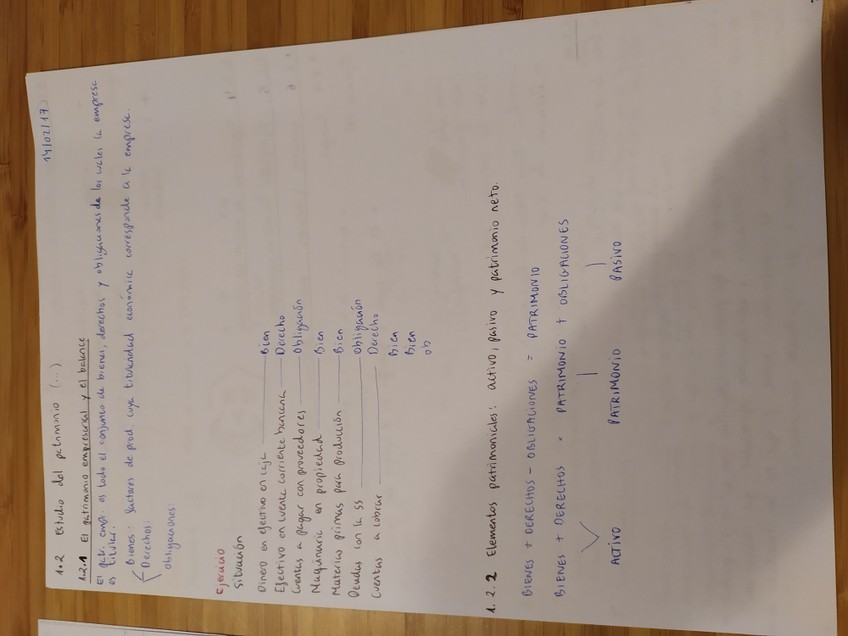 14/02/17
1.2 Estudio del patrimonio (...)
1.2.1 El patrimonio empresarial y el balance
El patr. emp. es todo el conjunto de bienes, derechos y obligaciones de los cuales la empresa
es titular.
Bienes: factores de prod. cuya titularidad económica corresponde a la empresa.
Derechos:
Obligaciones:
Ejercicio
Situación
Dinero en efectivo en caja Bien
Efectivo en cuenta corriente bancaria Derecho
Cuentas a pagar con proveedores Obligación
Maquinaria en propiedad Bien
Materias primas para producción Bien
Deudas con la SS Obligación
Cuentas a cobrar Derecho
Bien
Bien
ob
1.2.2 Elementos patrimoniales: activo, pasivo y patrimonio neto.
BIENES + DERECHOS - OBLIGACIONES = PATRIMONIO
BIENES + DERECHOS = PATRIMONIO + OBLIGACIONES
ACTIVO PATRIMONIO PASIVO